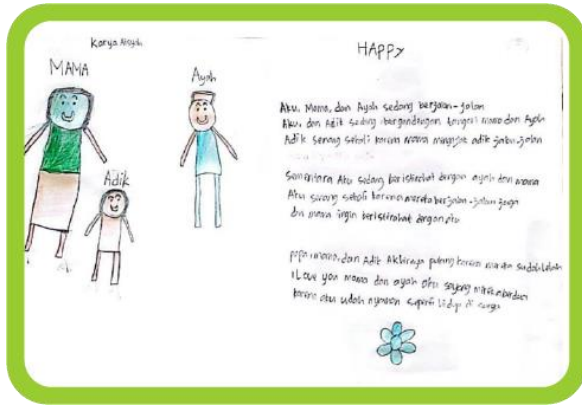 Karya Aisyah
MAMA
Ayah
Adik
HAPPY
Aku, Mama, dan Ayah sedang berjalan-jalan
Aku dan Adik sedang bergandengan tangan mama dan Ayah
Adik senang sekali karena mama mengajak adik jalan-jalan
Sementara Aku sedang beristirahat dengan ayah dan mama
Aku senang sekali karena mereka berjalan-jalan juga
dan mama ingin beristirahat dengan
papa, mama, dan Adik Akhirnya pulang karena mereka sudah lelah
I Love you mama dan ayah aku sayang mereka berdua
karena aku udah nyaman seperti hidup di surga